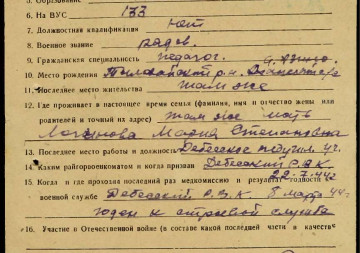 6. На ВУС 133
7. Должностная квалификация
8. Военное звание рядов.
9. Гражданская специальность педагог.
10. Место рождения
11. Последнее место жительства там же
12. Где проживает в настоящее время семья (фамилия, имя и отчество жены или
родителей и точный их адрес) там же мать
Мария Степановна
13. Последнее место работы и должность Дебесское педучил.
14. Каким райгорвоенкоматом и когда призван Дебесский РВК
22.7.44г
15. Когда и где проходил последний раз медкомиссию и результат годности
военной службе Дебесский Р.В.К. 8 марта 44г
годен к строевой службе
16. Участие в Отечественной войне (в составе какой последней части в качестве